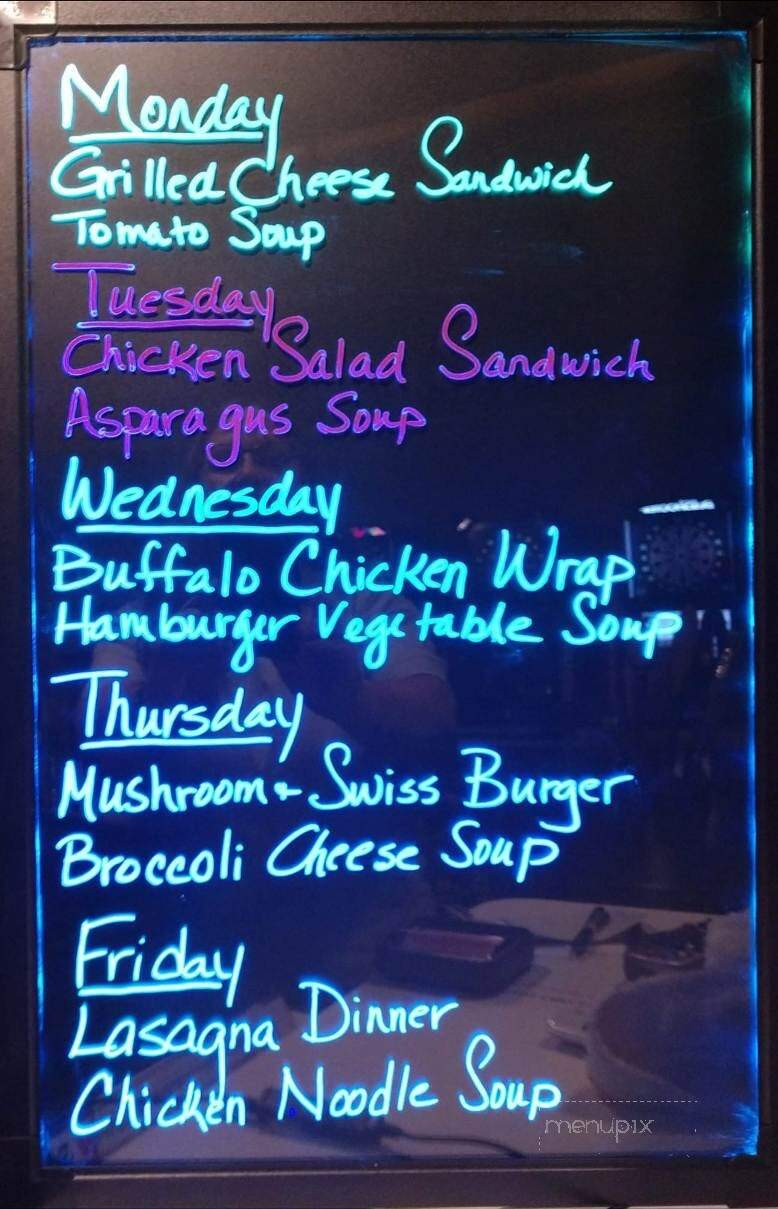 Monday
Grilled Cheese Sandwich
Tomato Soup
Tuesday
Chicken Salad Sandwich
Asparagus Soup
Wednesday
Buffalo Chicken Wrap
Hamburger Vegetable Soup
Thursday
Mushroom + Swiss Burger
Broccoli Cheese Soup
Friday
Lasagna Dinner
Chicken Noodle Soup
menupix